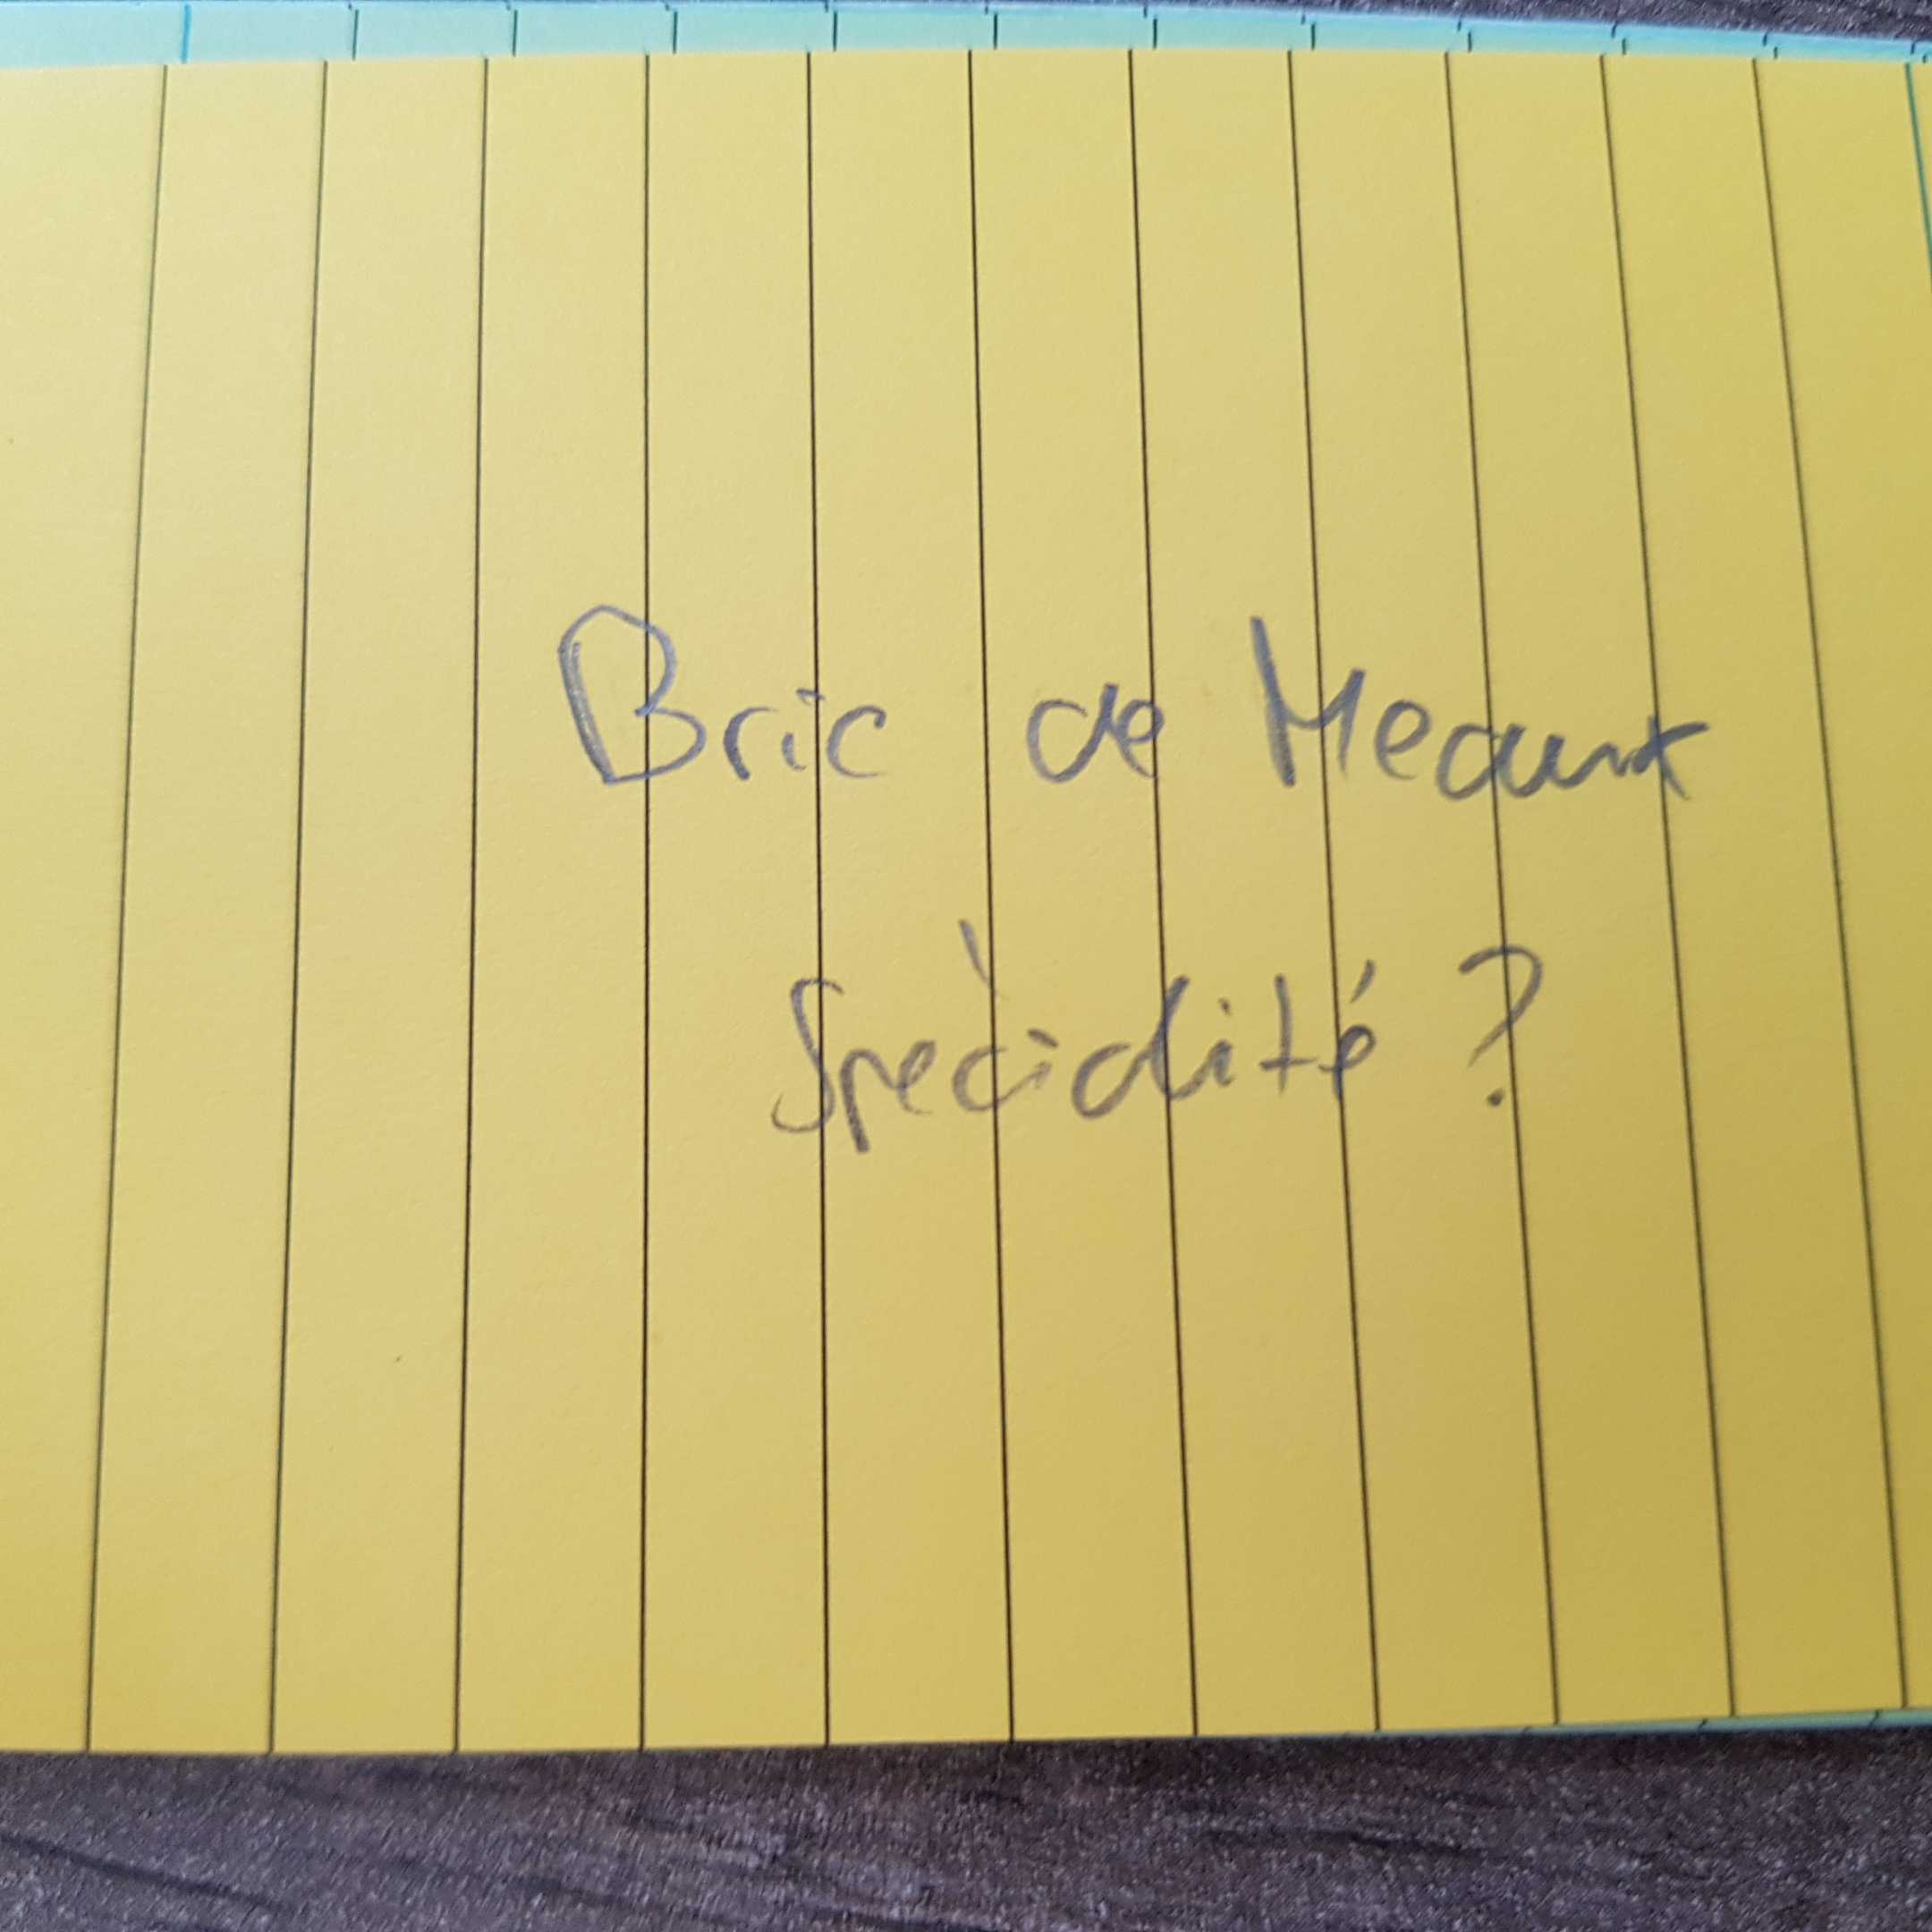 Brie de Meaux
Specialité ?